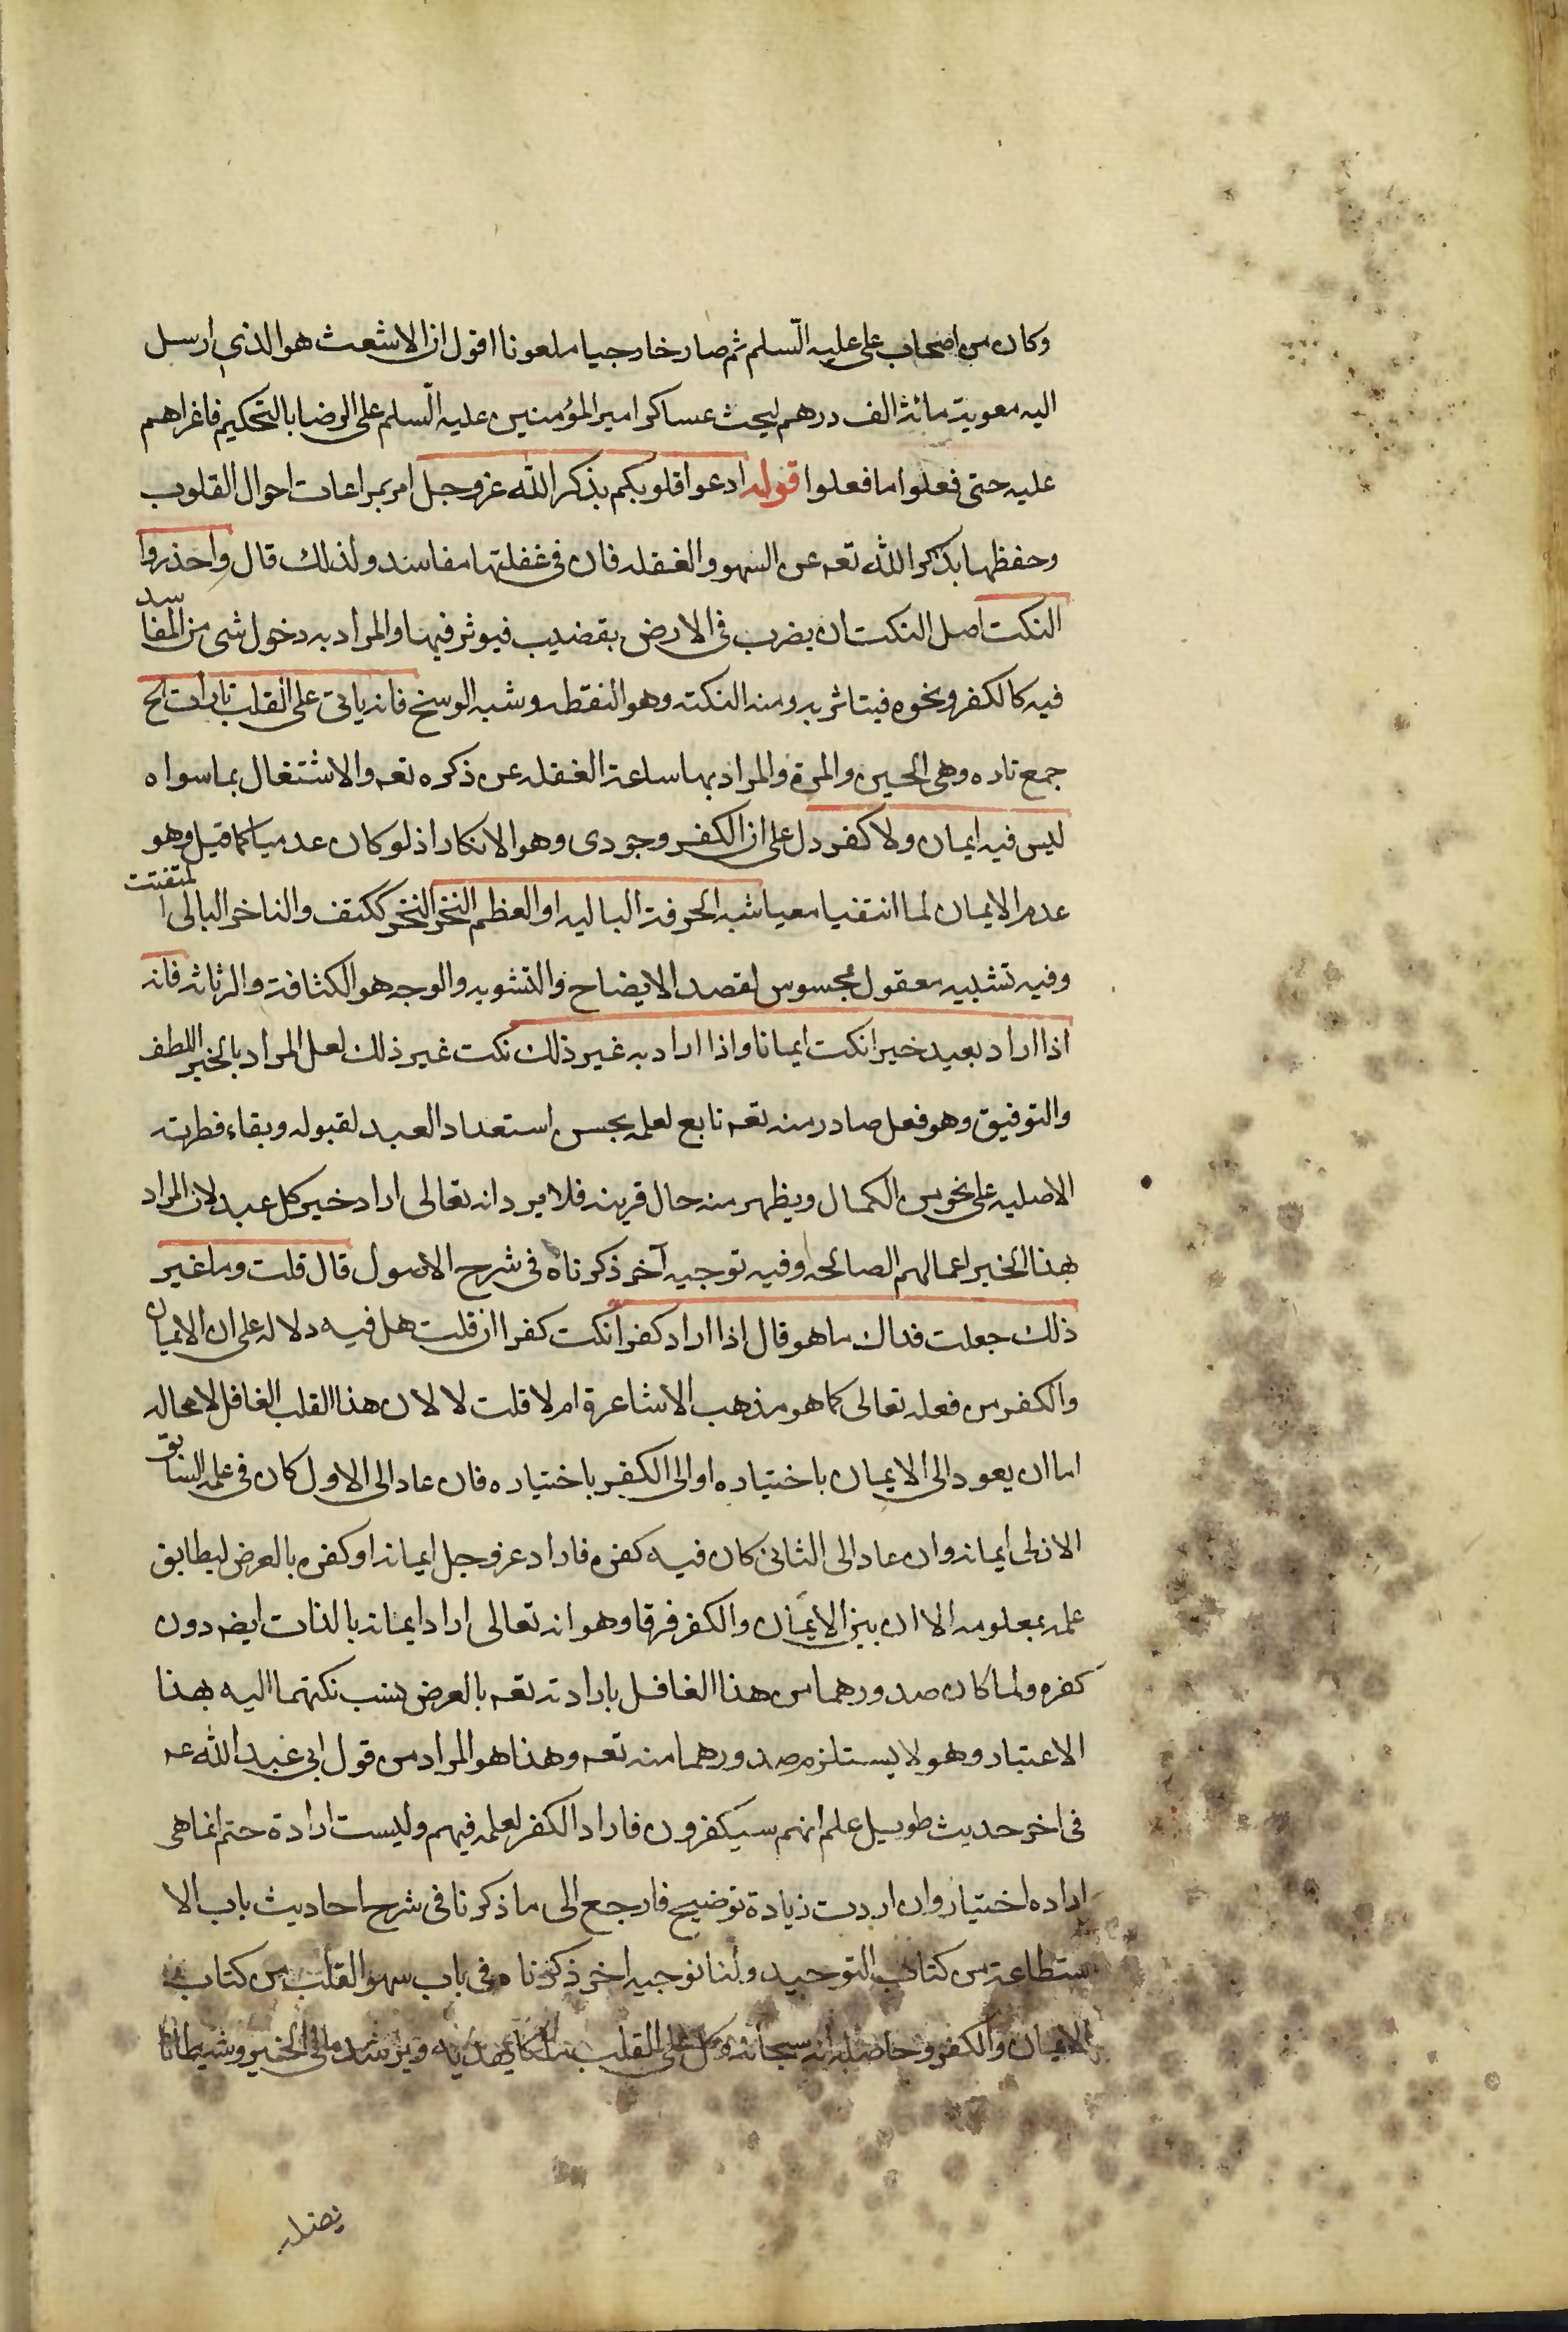 وكان من اصحاب على عليه السّلم ثم صار خارجيا ملعونا اقول ان الاشعث هو الذى ارسل
اليه معوية مائة الف درهم ليحث عساكر امير المؤمنين عليه السّلم على الرضا بالتحكيم فاغراهم
عليه حتى فعلوا ما فعلوا قوله ادعوا قلوبكم بذكر الله عز وجل امر بمراعات احوال القلوب
وحفظها بذكر الله تعه عن السهو والغفله فان فى غفلتها مفاسد ولذلك قال واحذروا
النكت اصل النكت ان يضرب فى الارض بقضيب فيوثر فيها والمراد به دخول شى من المفاسد
فيه كالكفر ونحوه فيتاثر به ومنه النكته وهو النقطه وشبه الوسخ فانه ياتى على القلب تارات الخ
جمع تاره وهى الحين والمرة والمراد بها ساعة الغفله عن ذكره تعه والاشتغال بما سواه
ليس فيه ايمان ولا كفر دل على ان الكفر وجودى وهو الانكار اذ لو كان عدميا كما قيل وهو
عدم الايمان لما انتفيا معيا شبه الخرقة الباليه او العظم النخر النخر ككتف والناخر البالى المتفتت
وفيه تشبيه معقول بمحسوس لقصد الايضاح والتشويه والوجه هو الكثافة والرثاثه فانه
اذا اراد بعبد خيرا نكت ايمانا واذا اراد به غير ذلك نكت غير ذلك لعل المراد بالخير اللطف
والتوفيق وهو فعل صادر منه تعه تابع لعلمه بحسن استعداد العبد لقبوله وبقاء فطرته
الاصليه على نحو من الكمال ويظهر منه حال قرينه فلا يرد انه تعالى اراد خير كل عبد لان المراد
بهذا الخير اعمالهم الصالحه وفيه توجيه آخر ذكرناه فى شرح الاصول قال قلت وما غير
ذلك جعلت فداك ما هو قال اذا اراد كفرا نكت كفرا ان قلت هل فيه دلاله على ان الايمان
والكفر من فعله تعالى كما هو مذهب الاشاعرة ام لا قلت لا لان هذا القلب الغافل لا محاله
اما ان يعود الى الايمان باختياره او الى الكفر باختياره فان عاد الى الاول كان فى علمه السابق
الازلى ايمانه وان عاد الى الثانى كان فيه كفره فاراد عز وجل ايمانه او كفره بالعرض ليطابق
علمه بمعلومه الا ان بين الايمان والكفر فرقا وهو انه تعالى اراد ايمانه بالذات ايضه دون
كفره ولما كان صدورهما من هذا الغافل بارادته تعه بالعرض نسب نكتهما اليه بهذا
الاعتبار وهو لا يستلزم صدورهما منه تعه وهذا هو المراد من قول ابى عبد الله عه
فى اخر حديث طويل علم انهم سيكفرون فاراد الكفر لعلمه فيهم وليست ارادة حتم انما هى
اراده اختيار وان اردت زيادة توضيح فارجع الى ما ذكرنا فى شرح احاديث باب الا
ستطاعة من كتاب التوحيد ولنا توجيه اخر ذكرناه فى باب سهو القلب من كتاب
الايمان والكفر وحاصله انه سبحانه وكل على القلب ملكا يهديه ويرشده الى الخير وشيطانا
يضله